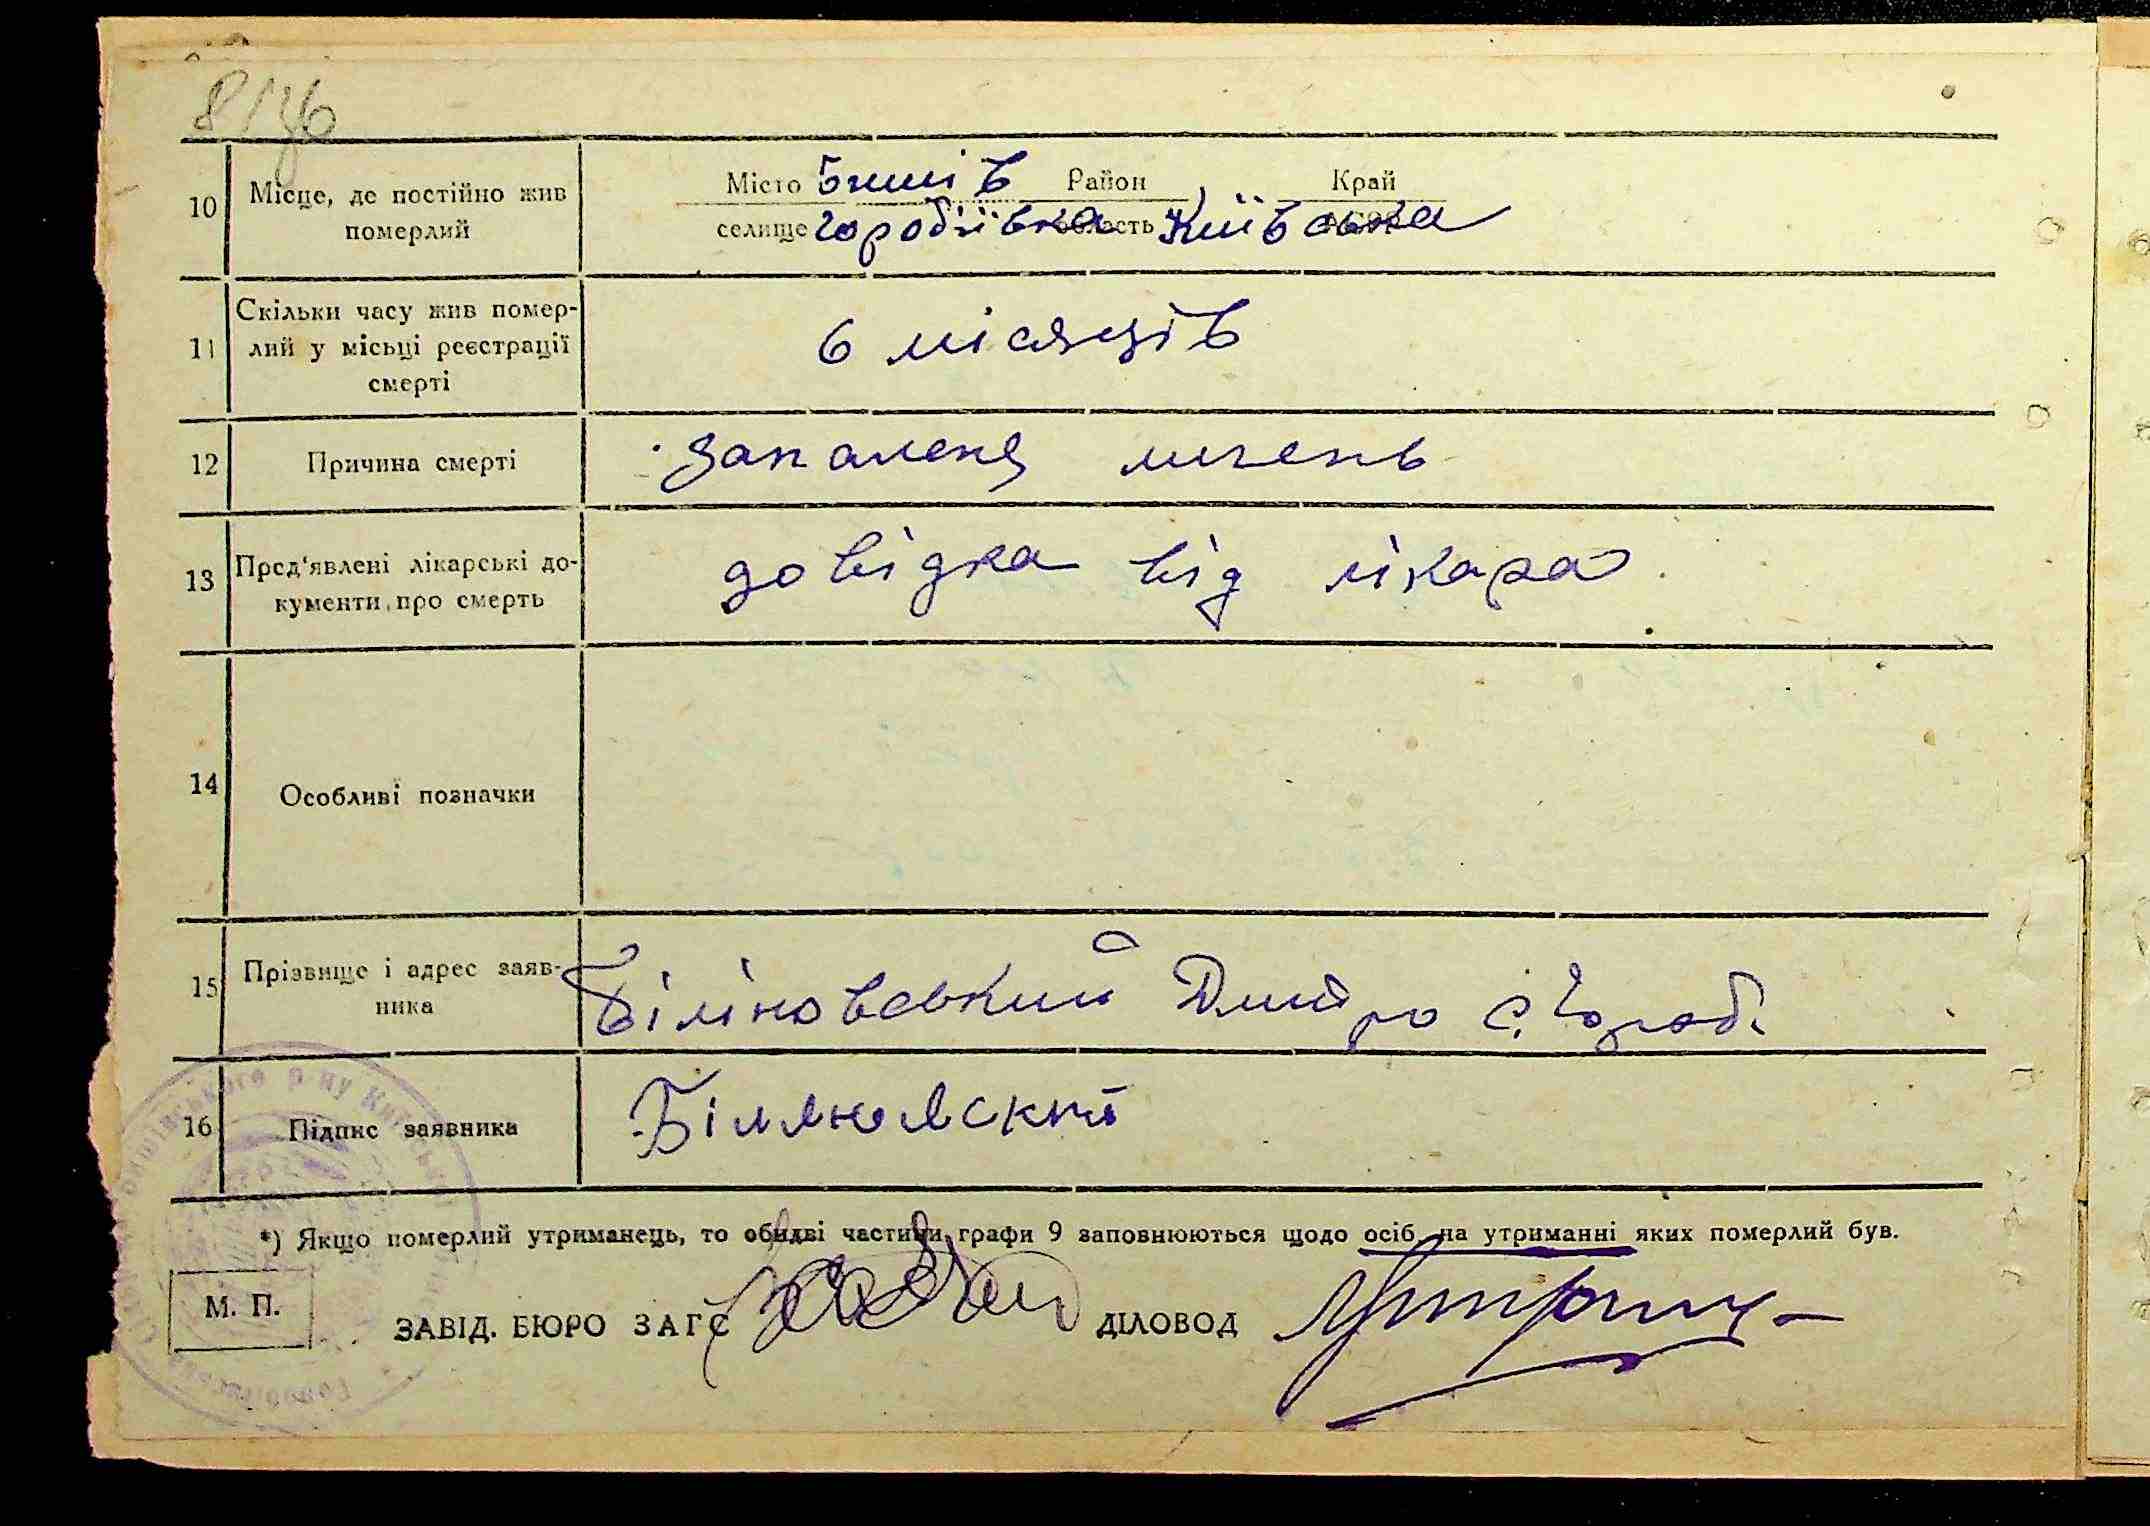 10
Місце, де постійно жив
померлий
Місто Бишів Район Край
селище Горобіївка область Київська
11
Скільки часу жив помер-
лий у місьці реєстрації
смерті
6 місяців
12
Причина смерті
Запаленя лигень
13
Пред'явлені лікарські до-
кументи про смерть
довідка від лікара
14
Особливі позначки
15
Прізвище і адрес заяв-
ника
Біліновський Дмитро с. Гороб.
16
Підпис заявника
Біляновский
*) Якщо померлий утриманець, то обидві частини графи 9 заповнюються щодо осіб на утриманні яких померлий був.
М. П.
ЗАВІД. БЮРО ЗАГС
ДІЛОВОД